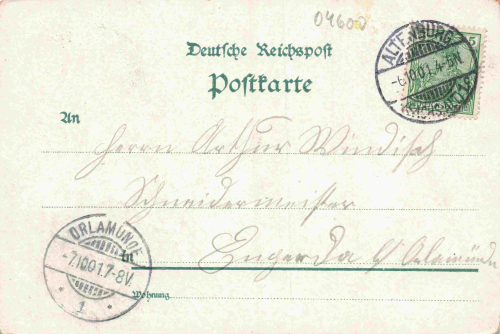 04600
Deutsche Reichspost
Postkarte
ALTENBURG
-6.10.01.4-5N
5
An
Herrn Arthur Windisch
Schneidermeister
in
Engerda b/ Orlamünde
Wohnung
ORLAMÜNDE
-7.10.01.7-8V.
1